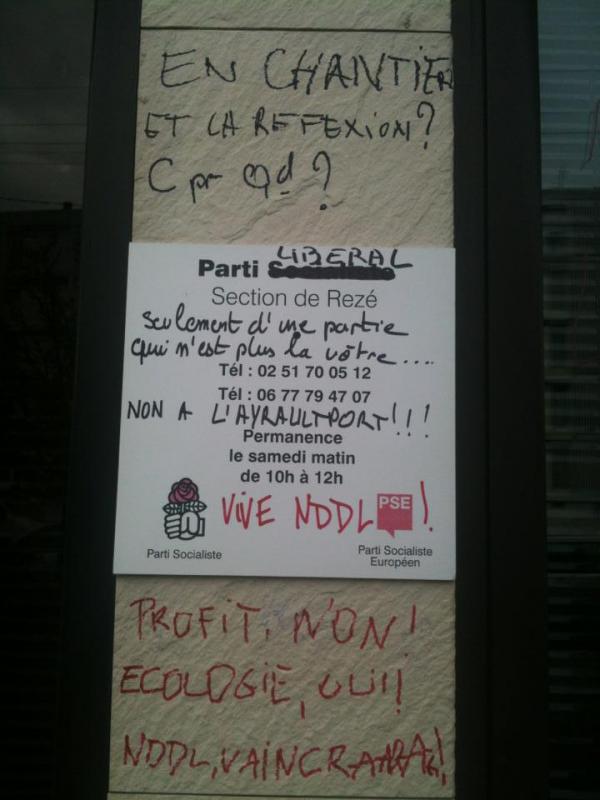 EN CHANTIER
ET LA REFEXION?
C pr Qd?
LIBERAL
Parti
Section de Rezé
Seulement d'une partie
qui n'est plus la vôtre....
Tél : 02 51 70 05 12
Tél : 06 77 79 47 07
NON A L'AYRAULTPORT!!!
Permanence
le samedi matin
de 10h à 12h
VIVE NDDL !
PSE
Parti Socialiste
Parti Socialiste
Européen
PROFIT, NON!
ECOLOGIE, OUI!
NDDL, VAINCRAAAA!